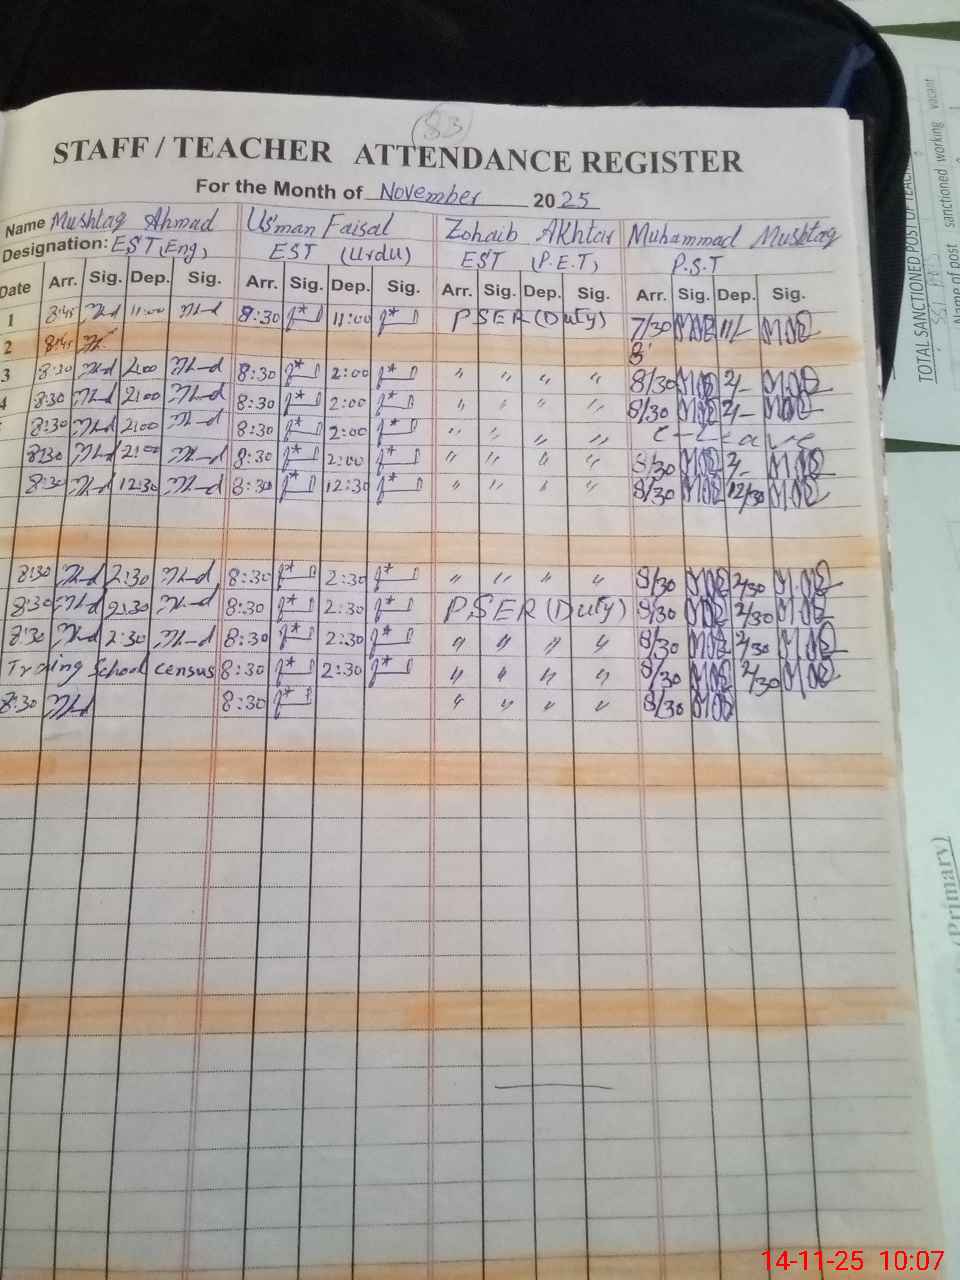 83
STAFF / TEACHER ATTENDANCE REGISTER
For the Month of November 2025
Name Mushtaq Ahmad Usman Faisal Zohaib Akhtar Muhammad Mushtaq
Designation: EST (Eng) EST (Urdu) EST (P.E.T) P.S.T
Date Arr. Sig. Dep. Sig. Arr. Sig. Dep. Sig. Arr. Sig. Dep. Sig. Arr. Sig. Dep. Sig.
1 8:45 11:00 8:30 11:00 PSER (Duty) 7/30 11/-
2 8:45 8
3 8:30 2:00 8:30 2:00 " " " " 8/30 2/-
4 8:30 2:00 8:30 2:00 " " " " 8/30 2/-
8:30 2:00 8:30 2:00 " " " " Leave
8:30 2:00 8:30 2:00 " " " " 8/30 2/-
8:30 12:30 8:30 12:30 " " " " 8/30 12/30
8:30 2:30 8:30 2:30 " " " " 8/30 2/30
8:30 2:30 8:30 2:30 PSER (Duty) 8/30 2/30
8:30 2:30 8:30 2:30 " " " " 8/30 2/30
School census 8:30 2:30 " " " " 8/30 2/30
8:30 8:30 " " " " 8/30
TOTAL SANCTIONED POST OF TEACH
Name of post sanctioned working vacant
(Primary)
14-11-25 10:07